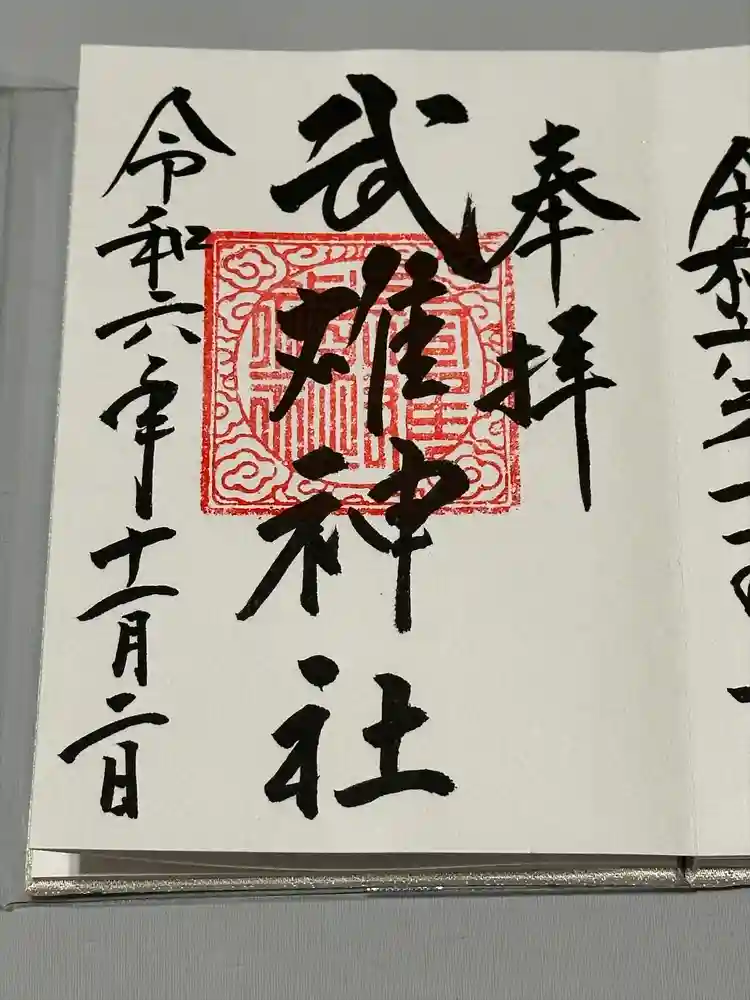 奉拝
武雄神社
令和六年十一月二日